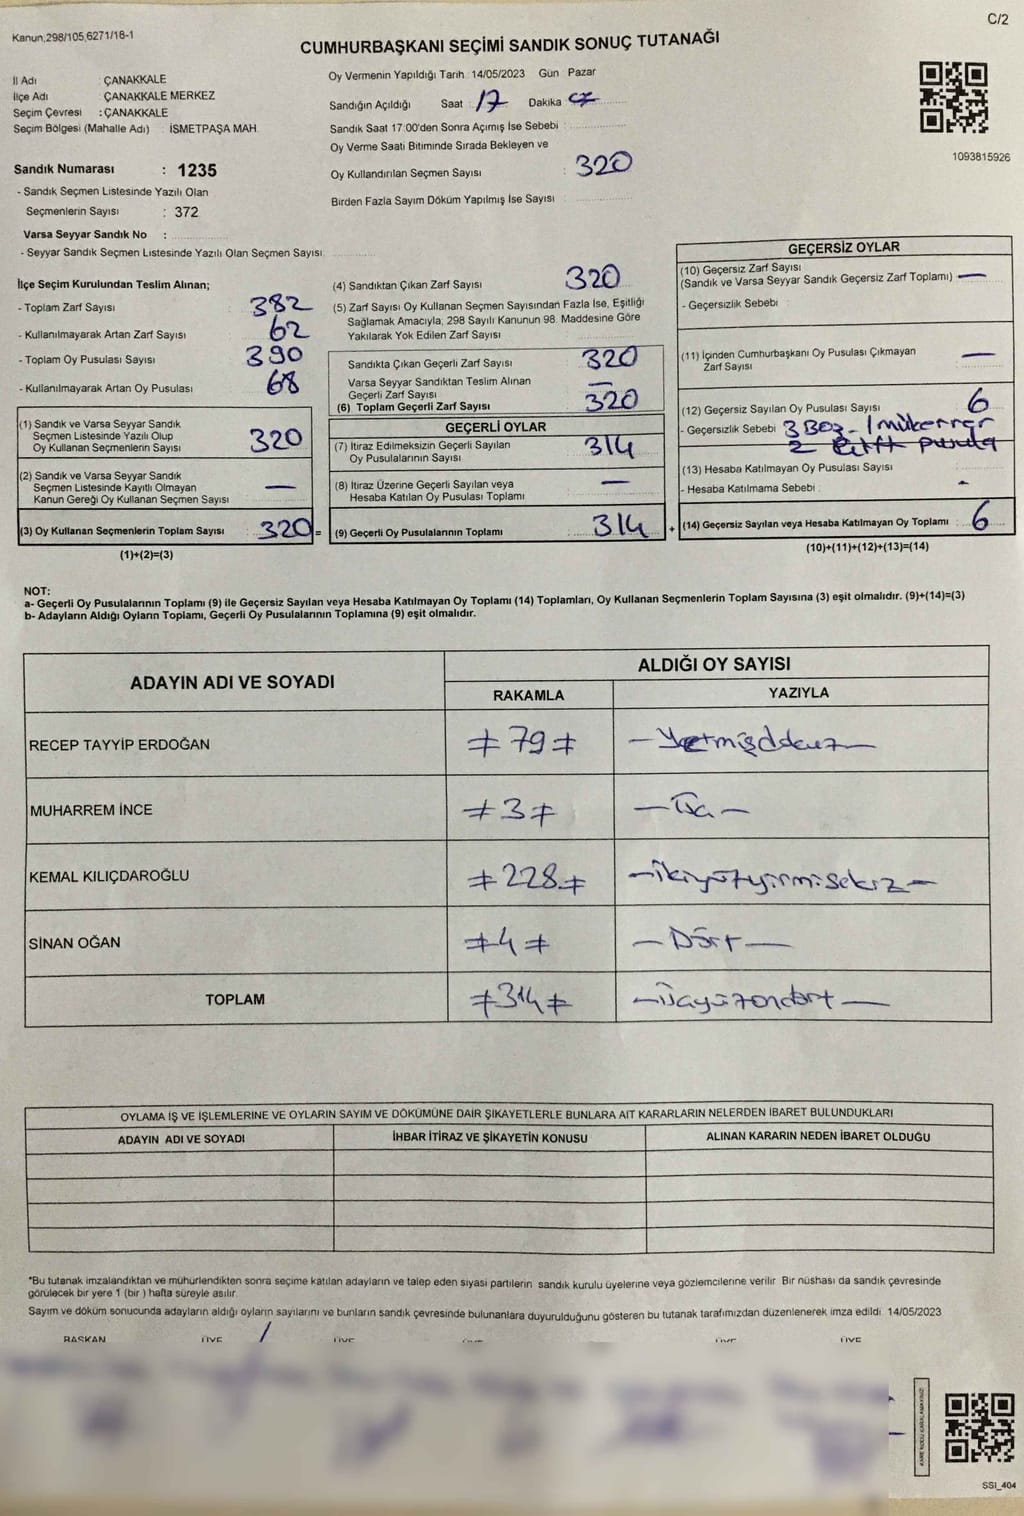 C/2
Kanun,298/105,6271/18-1
CUMHURBAŞKANI SEÇİMİ SANDIK SONUÇ TUTANAĞI
İl Adı ÇANAKKALE
İlçe Adı ÇANAKKALE MERKEZ
Seçim Çevresi : ÇANAKKALE
Seçim Bölgesi (Mahalle Adı) İSMETPAŞA MAH.
Sandık Numarası : 1235
- Sandık Seçmen Listesinde Yazılı Olan
Seçmenlerin Sayısı : 372
Varsa Seyyar Sandık No :
- Seyyar Sandık Seçmen Listesinde Yazılı Olan Seçmen Sayısı
Oy Vermenin Yapıldığı Tarih 14/05/2023 Gün Pazar
Sandığın Açıldığı Saat 17 Dakika
Sandık Saat 17:00'den Sonra Açımış İse Sebebi :
Oy Verme Saati Bitiminde Sırada Bekleyen ve
Oy Kullandırılan Seçmen Sayısı : 320
Birden Fazla Sayım Döküm Yapılmış İse Sayısı
1093815926
İlçe Seçim Kurulundan Teslim Alınan;
- Toplam Zarf Sayısı 382
- Kullanılmayarak Artan Zarf Sayısı 62
- Toplam Oy Pusulası Sayısı 390
- Kullanılmayarak Artan Oy Pusulası 68
(1) Sandık ve Varsa Seyyar Sandık
Seçmen Listesinde Yazılı Olup
Oy Kullanan Seçmenlerin Sayısı 320
(2) Sandık ve Varsa Seyyar Sandık
Seçmen Listesinde Kayıtlı Olmayan
Kanun Gereği Oy Kullanan Seçmen Sayısı —
(3) Oy Kullanan Seçmenlerin Toplam Sayısı 320 =
(1)+(2)=(3)
(4) Sandıktan Çıkan Zarf Sayısı 320
(5) Zarf Sayısı Oy Kullanan Seçmen Sayısından Fazla İse, Eşitliği
Sağlamak Amacıyla, 298 Sayılı Kanunun 98. Maddesine Göre
Yakılarak Yok Edilen Zarf Sayısı
Sandıkta Çıkan Geçerli Zarf Sayısı 320
Varsa Seyyar Sandıktan Teslim Alınan
Geçerli Zarf Sayısı —
(6) Toplam Geçerli Zarf Sayısı 320
GEÇERLİ OYLAR
(7) İtiraz Edilmeksizin Geçerli Sayılan
Oy Pusulalarının Sayısı 314
(8) İtiraz Üzerine Geçerli Sayılan veya
Hesaba Katılan Oy Pusulası Toplamı —
(9) Geçerli Oy Pusulalarının Toplamı 314 +
GEÇERSİZ OYLAR
(10) Geçersiz Zarf Sayısı
(Sandık ve Varsa Seyyar Sandık Geçersiz Zarf Toplamı) —
- Geçersizlik Sebebi :
(11) İçinden Cumhurbaşkanı Oy Pusulası Çıkmayan
Zarf Sayısı —
(12) Geçersiz Sayılan Oy Pusulası Sayısı 6
- Geçersizlik Sebebi 3 Boz - 1 mükerrer
2 Çift pusula
(13) Hesaba Katılmayan Oy Pusulası Sayısı
- Hesaba Katılmama Sebebi : -
(14) Geçersiz Sayılan veya Hesaba Katılmayan Oy Toplamı 6
(10)+(11)+(12)+(13)=(14)
NOT:
a- Geçerli Oy Pusulalarının Toplamı (9) ile Geçersiz Sayılan veya Hesaba Katılmayan Oy Toplamı (14) Toplamları, Oy Kullanan Seçmenlerin Toplam Sayısına (3) eşit olmalıdır. (9)+(14)=(3)
b- Adayların Aldığı Oyların Toplamı, Geçerli Oy Pusulalarının Toplamına (9) eşit olmalıdır.
ADAYIN ADI VE SOYADI ALDIĞI OY SAYISI
RAKAMLA YAZIYLA
RECEP TAYYİP ERDOĞAN ≠79≠ —Yetmişdokuz—
MUHARREM İNCE ≠3≠ —Üç—
KEMAL KILIÇDAROĞLU ≠228≠ —ikiyüzyirmisekiz—
SİNAN OĞAN ≠4≠ —Dört—
TOPLAM ≠314≠ —Üçyüzondört—
OYLAMA İŞ VE İŞLEMLERİNE VE OYLARIN SAYIM VE DÖKÜMÜNE DAİR ŞİKAYETLERLE BUNLARA AİT KARARLARIN NELERDEN İBARET BULUNDUKLARI
ADAYIN ADI VE SOYADI İHBAR İTİRAZ VE ŞİKAYETİN KONUSU ALINAN KARARIN NEDEN İBARET OLDUĞU
*Bu tutanak imzalandıktan ve mühürlendikten sonra seçime katılan adayların ve talep eden siyasi partilerin sandık kurulu üyelerine veya gözlemcilerine verilir. Bir nüshası da sandık çevresinde
görülecek bir yere 1 (bir ) hafta süreyle asılır.
Sayım ve döküm sonucunda adayların aldığı oyların sayılarını ve bunların sandık çevresinde bulunanlara duyurulduğunu gösteren bu tutanak tarafımızdan düzenlenerek imza edildi. 14/05/2023
BAŞKAN ÜYE ÜYE ÜYE ÜYE ÜYE
SSI_404